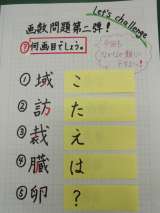 Let's challenge
画数問題第二弾!
⑦何画目でしょう。
① 域 こ
② 訪 た
③ 裁 え
④ 臓 は
⑤ 卵 ?